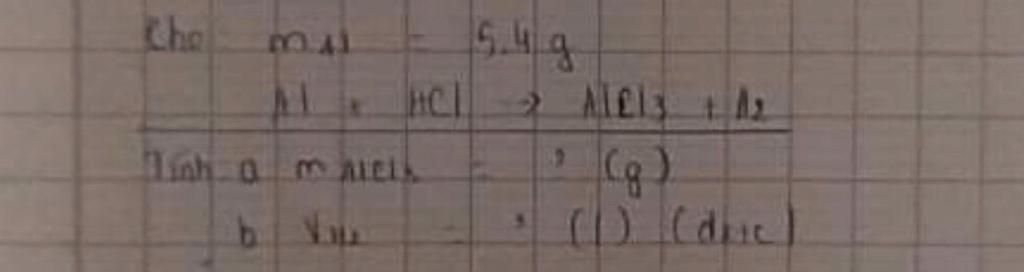 Cho m Al = 5.4 g
Al + HCl → AlCl3 + H2
Tính a m AlCl3 = ? (g)
b VH2 = ? (l) (đktc)